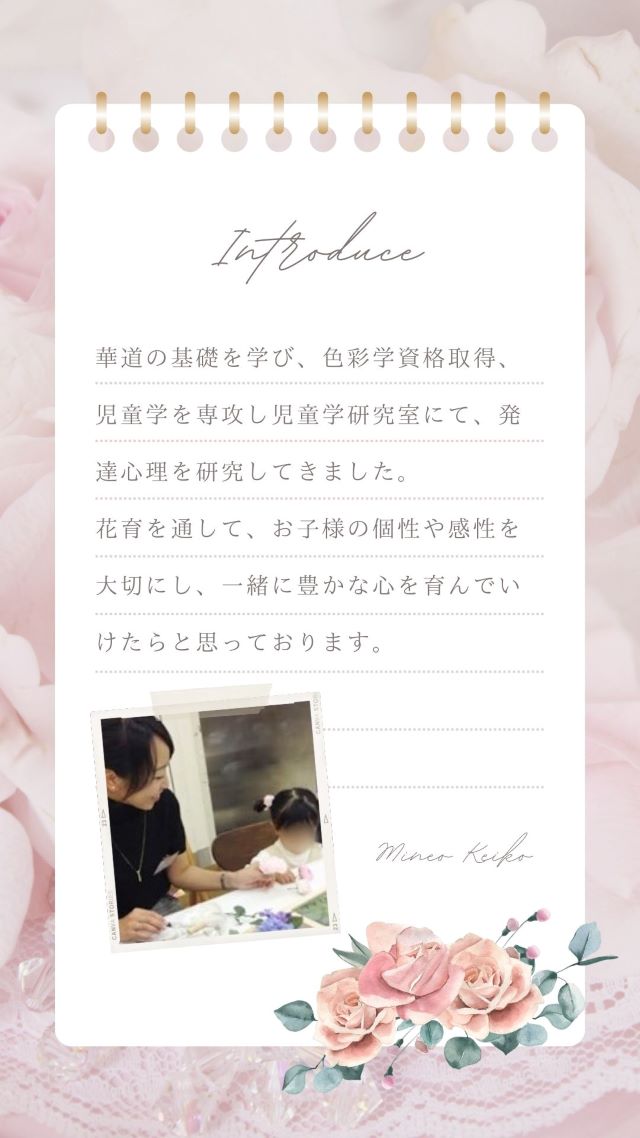 Introduce
華道の基礎を学び、色彩学資格取得、
児童学を専攻し児童学研究室にて、発
達心理を研究してきました。
花育を通して、お子様の個性や感性を
大切にし、一緒に豊かな心を育んでい
けたらと思っております。
CANVA STORIES
CANVA STORIES
Mineo Keiko